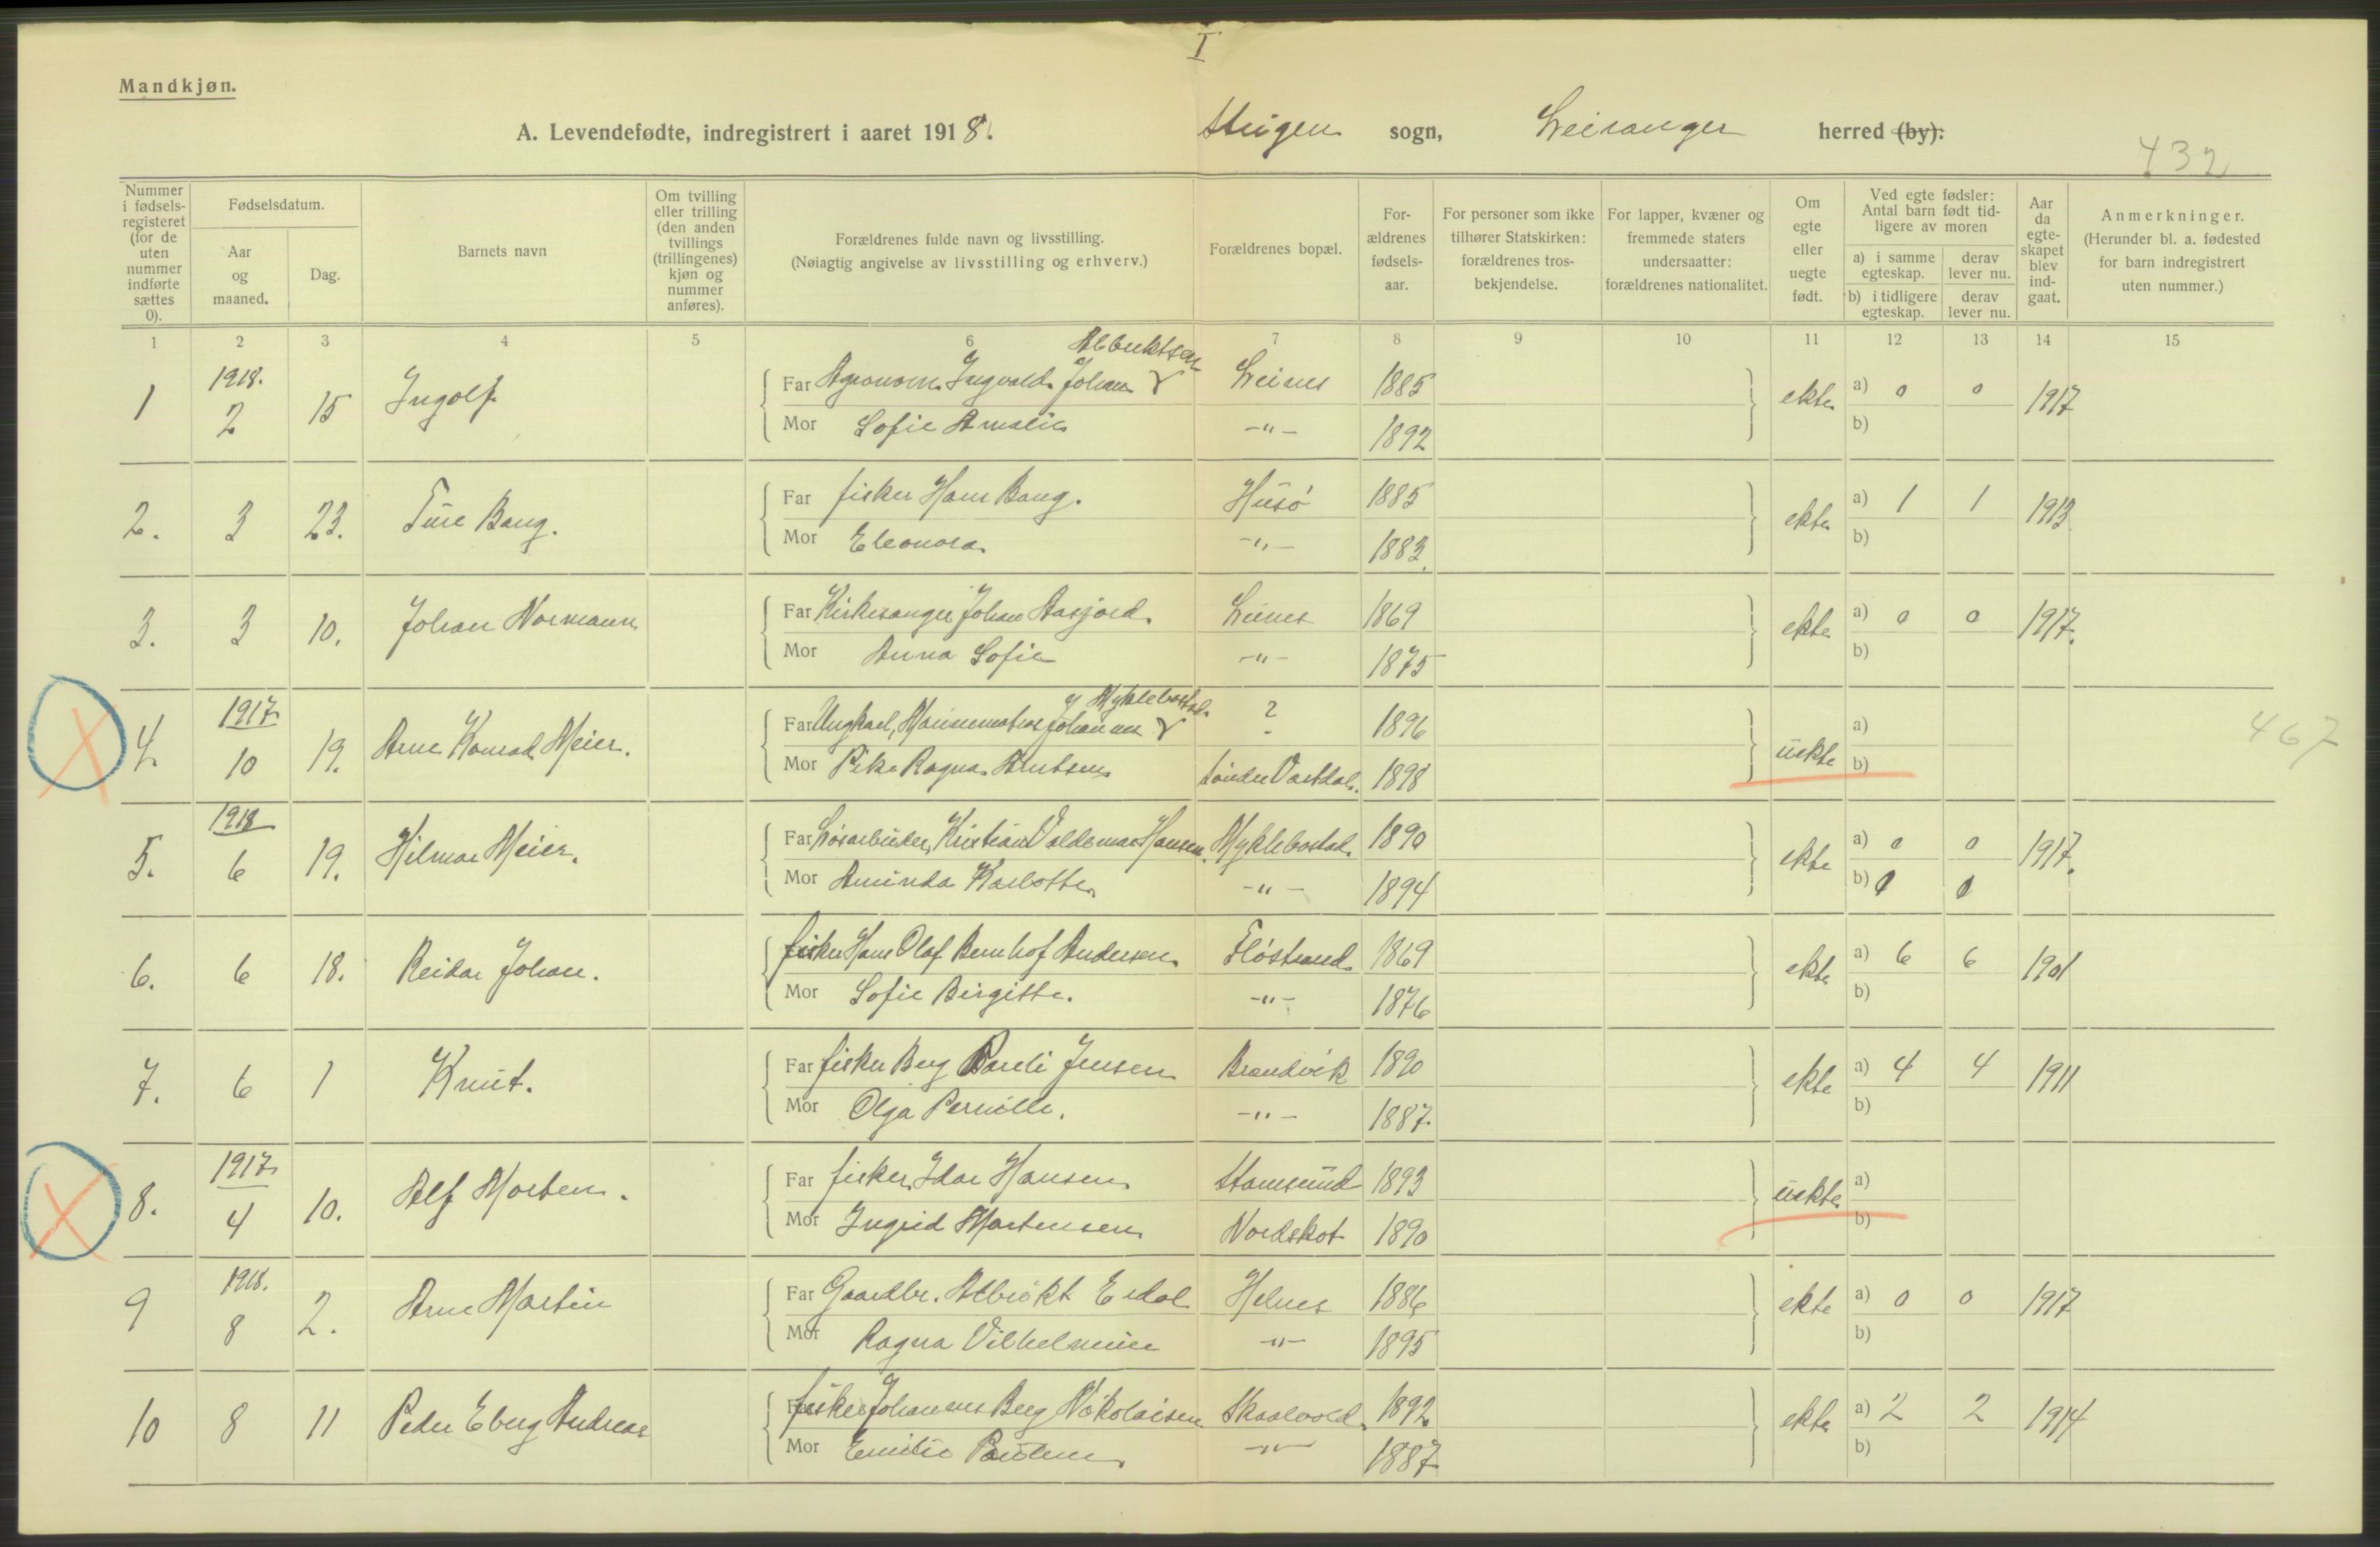 I
Mandkjøn.
A. Levendefødte, indregistrert i aaret 1918. Steigen sogn, Leiranger herred (by):
432
Nummer i fødsels-registeret (for de uten nummer indførte sættes 0).
Fødselsdatum.
Aar og maaned.
Dag.
Barnets navn
Om tvilling eller trilling (den anden tvillings (trillingenes) kjøn og nummer anføres).
Forældrenes fulde navn og livsstilling.
(Nøiagtig angivelse av livsstilling og erhverv.)
Forældrenes bopæl.
For-ældrenes fødsels-aar.
For personer som ikke tilhører Statskirken: forældrenes tros-bekjendelse.
For lapper, kvæner og fremmede staters undersaatter: forældrenes nationalitet.
Om egte eller uegte født.
Ved egte fødsler: Antal barn født tid-ligere av moren
a) i samme egteskap.
derav lever nu.
b) i tidligere egteskap.
derav lever nu.
Aar da egte-skapet blev ind-gaat.
Anmerkninger.
(Herunder bl. a. fødested for barn indregistrert uten nummer.)
1 2 3 4 5 6 7 8 9 10 11 12 13 14 15
Albriktsen
1 1918. 2 15 Ingolf Far Agronom Ingvald Johan Leines 1885 ekte a) 0 0 1917
Mor Sofie Amalie -"- 1892 b)
2. 3 23. Ture Bang. Far fisker Hans Bang. Husø 1885 ekte a) 1 1 1913
Mor Eleonora -"- 1883. b)
3. 3 10. Johan Normann Far Kirkesanger Johan Aasjord. Leines 1869 ekte a) 0 0 1917.
Mor Anna Sofie -"- 1875 b)
Myklebostad
4. 1917 10 19. Arne Konrad Meier. Far Ungkarl, Marinematros Johannes ? 1896 uekte a)
Mor Pike Ragna Knutsen Søndre Vartdal. 1898 b)
467
5. 1918 6 19. Hilmar Meier. Far Løsarbeider, Kristian Valdemar Hansen. Myklebostad. 1890 ekte a) 0 0 1917.
Mor Aminda Karlotte -"- 1894 b) 0 0
6. 6 18. Reidar Johan. fisker Hans Olaf Bernhof Andersen. Fløstrand. 1869 ekte a) 6 6 1901
Mor Sofie Birgitte. -"- 1876 b)
7. 6 1 Knut. Far fisker Berg Pareli Jensen Brandvik 1890 ekte a) 4 4 1911
Mor Olga Pernille. -"- 1887. b)
8. 1917 4 10. Alf Morten. Far fisker Idar Hansen Stamsund 1893 uekte a)
Mor Ingrid Mortensen Nordskot 1890 b)
9 1918. 8 2. Arne Martin Far Gaardbr. Albrikt Erdal Helnes 1886 ekte a) 0 0 1917
Mor Ragna Vilhelmine -"- 1895 b)
10 8 11 Peder Eberg Andreas fisker Johannes Berg Nikolaisen Skaalvold 1892 ekte a) 2 2 1914
Mor Emilie -"- 1887 b)